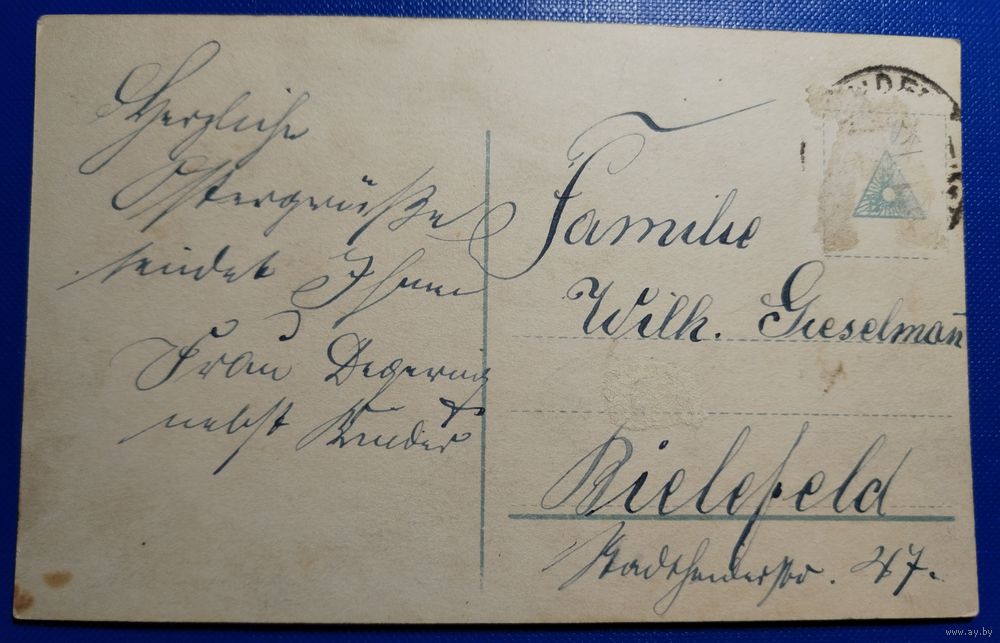 Herzliche
Ostergrüße
sendet Ihnen
Frau Degering
nebst Kinder
Familie
Wilh. Gieselmañ
Bielefeld
Stadtheiderstr. 47.
www.ay.by